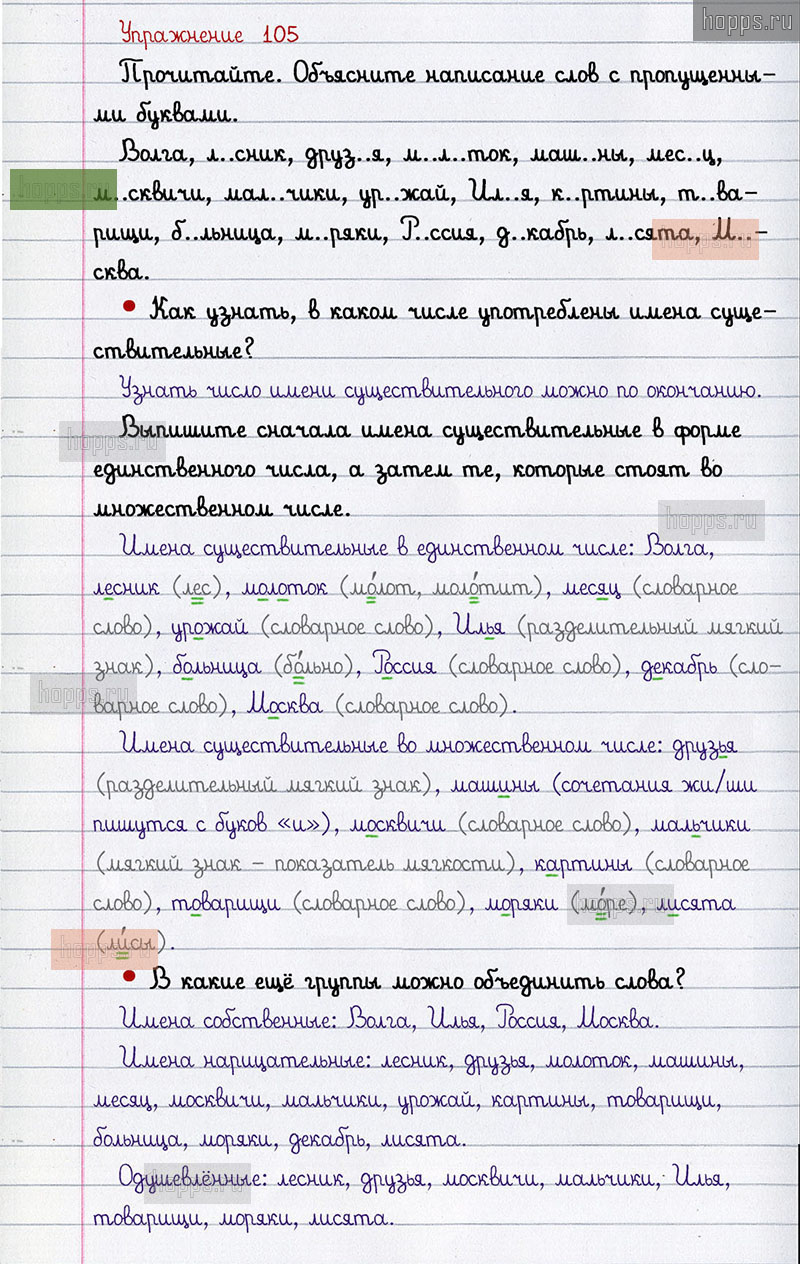 hopps.ru
Упражнение 105
Прочитайте. Объясните написание слов с пропущенны-
ми буквами.
Волга, л..сник, друз..я, м..л..ток, маш..ны, мес..ц,
м..сквичи, мал..чики, ур..жай, Ил..я, к..ртины, т..ва-
рищи, б..льница, м..ряки, Р..ссия, д..кабрь, л..сята, М..-
сква.
• Как узнать, в каком числе употреблены имена суще-
ствительные?
Узнать число имени существительного можно по окончанию.
Выпишите сначала имена существительные в форме
единственного числа, а затем те, которые стоят во
множественном числе.
Имена существительные в единственном числе: Волга,
лесник (лес), молоток (мо́лот, моло́тит), месяц (словарное
слово), урожай (словарное слово), Илья (разделительный мягкий
знак), больница (бо́льно), Россия (словарное слово), декабрь (сло-
варное слово), Москва (словарное слово).
Имена существительные во множественном числе: друзья
(разделительный мягкий знак), машины (сочетания жи/ши
пишутся с буков «и»), москвичи (словарное слово), мальчики
(мягкий знак – показатель мягкости), картины (словарное
слово), товарищи (словарное слово), моряки (мо́ре), лисята
(ли́сы).
• В какие ещё группы можно объединить слова?
Имена собственные: Волга, Илья, Россия, Москва.
Имена нарицательные: лесник, друзья, молоток, машины,
месяц, москвичи, мальчики, урожай, картины, товарищи,
больница, моряки, декабрь, лисята.
Одушевлённые: лесник, друзья, москвичи, мальчики, Илья,
товарищи, моряки, лисята.